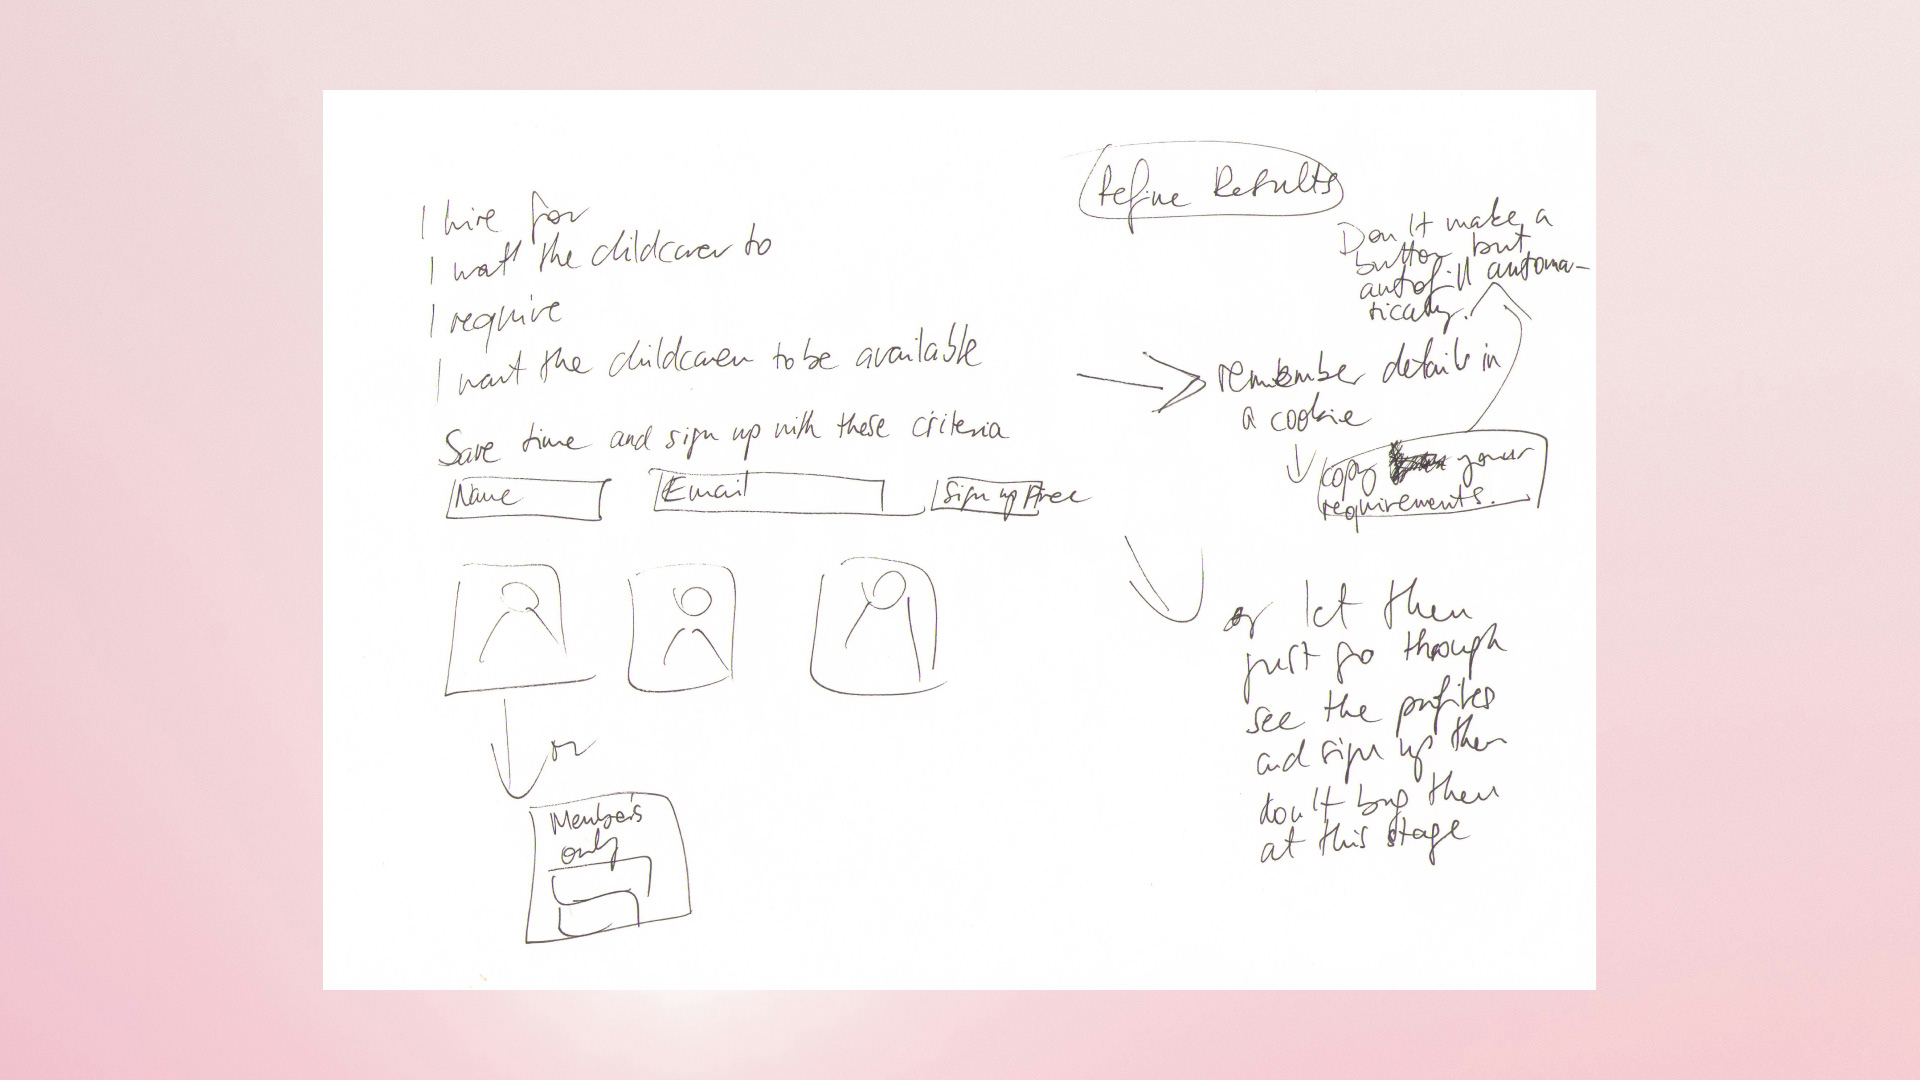 Refine Results
I hire for
I wat the childcarer to
I require
I want the childcarer to be available
Save time and sign up with these criteria
Name
Email
Sign up Free
Members
only
or
Don't make a
button but
autofill automa-
tically.
remember details in
a cookie
copy your
requirements.
or let them
just go through
see the profiles
and sign up then
don't bug them
at this stage